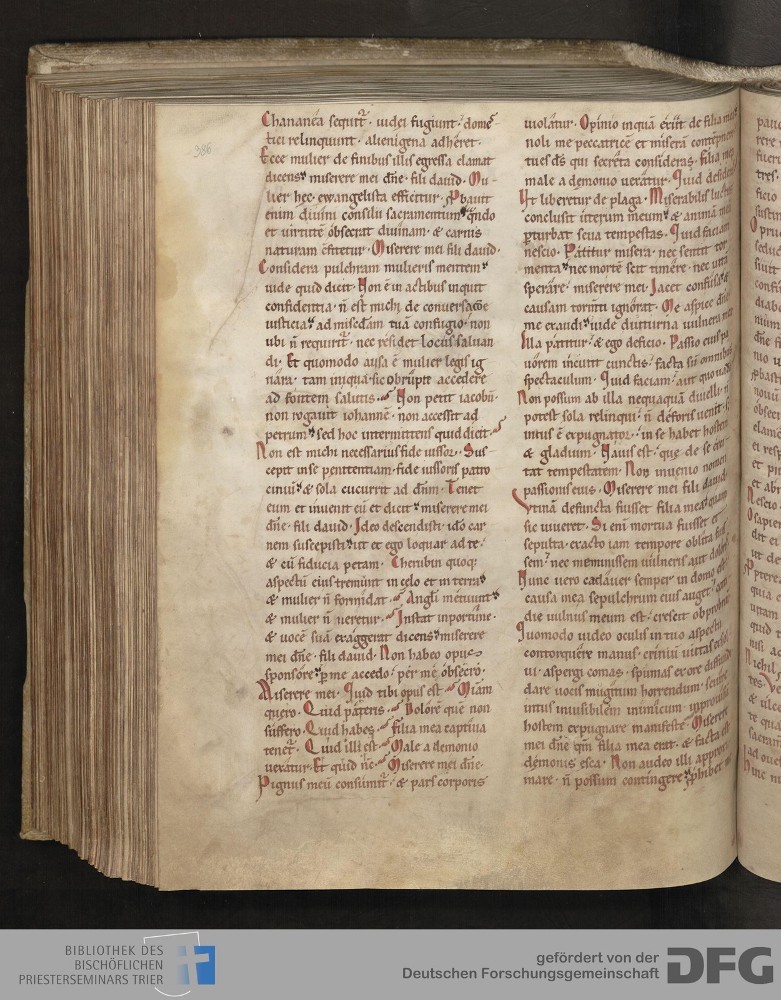 986
Chananea sequit᷑. iudei fugiunt. dome-
tici relinquunt. alienigena adheret.
Ecce mulier de finibus illis egressa clamat
dicens. miserere mei dn̄e. fili dauid. Mu-
lier hec ewangelista efficitur. Pbauit
enim diuini consilii sacramentum. qn̄do
et uirtutē obsecrat diuinam. & carnis
naturam cōfitetur. Miserere mei fili dauid.
Considera pulchram mulieris mentem.
uide quid dicit. Non ē in actibus inquit
confidentia. n̄ est michi de conuersacōe
iusticia. ad misc̄dam tuā confugio. non
ubi n̄ requirit᷑. nec residet locus saluan
di. Et quomodo ausa ē mulier legis ig
nara. tam iniqua. sic obrupte accedere
ad fontem salutis. Non petit iacobū.
non rogauit iohannē. non accessit ad
petrum. sed hoc intermittens quid dicit.
Non est michi necessarius fide iussor. Sus-
cepit in se penitentiam. fide iussoris patro
ciniū. & sola cucurrit ad dn̄m. Tenet
eum et inuenit eū et dicit. miserere mei
dn̄e. fili dauid. Ideo descendisti. idō car
nem suscepisti. ut et ego loquar ad te.
& cū fiducia petam. Cherubin quoq;
aspectū eius tremunt in celo et in terris.
& mulier n̄ formidat. Angli metuunt.
& mulier n̄ ueretur. Instat inportune.
& uocē suā exaggerat dicens. miserere
mei dn̄e. fili dauid. Non habeo opus
sponsore. p me accedo. per me obsecro.
Miserere mei. Quid tibi opus est. Uiam
quero. Quid pateris. Dolorē que non
suffero. Quid habes. Filia mea captiua
tenet᷑. Quid illi est. Male a demonio
uexatur. Et quid nē. Miserere mei dn̄e.
Pignus meū consumit᷑. & pars corporis
uiolatur. Opinio inquā exiit de filia
noli me peccatricē et miserā
tu es dς qui secreta consideras. filia mea
male a demonio uexatur. Quid
Ut liberetur de plaga. Miserabilis
conclusit uterum meum. & animā
pturbat seua tempestas. Quid faciam
nescio. Patitur misera. nec sentit
menta. nec mortē scit timere. nec uitā
sperare. miserere mei. Iacet confusa. &
causam torm̄ti ignorat. Me aspice dn̄e
me exaudi. uide diuturna uulnera
Illa patitur. & ego deficio. Passio eius
uxorem incutit cunctis. facta sū omnibus
spectaculum. Quid faciam. aut quo
Non possum ab illa nequaquā diuelli. n̄
potest sola relinqui. n̄ deforis uenit.
intus ē expugnator. in se habet hostem
& gladium. Nauis est. que de se
tat tempestatem. Non inuenio nomen
passionis eius. Miserere mei fili dauid
Vtinā defuncta fuisset filia mea. quam
sic uiueret. Si enī mortua fuisset et
sepulta. exacto iam tempore oblita
sem. nec meminissem uulneris aut
Nunc uero cadauer semper in domo est
causa mea sepulchrum eius auget.
die uulnus meum est. crescit
Quomodo uideo oculis in tuo aspectu
contorquere manus. criniū
ui. aspergi comas. spumas ex ore
dare uocis mugitum horrendum.
intus inuisibilem inimicum.
hostem expugnare manifeste. Miserere
mei dn̄e qm̄ filia mea erat. & facta est
demonis esca. Non audeo illi
mare. n̄ possum contingere. phibet
BIBLIOTHEK DES
BISCHÖFLICHEN
PRIESTERSEMINARS TRIER
gefördert von der
Deutschen Forschungsgemeinschaft
DFG